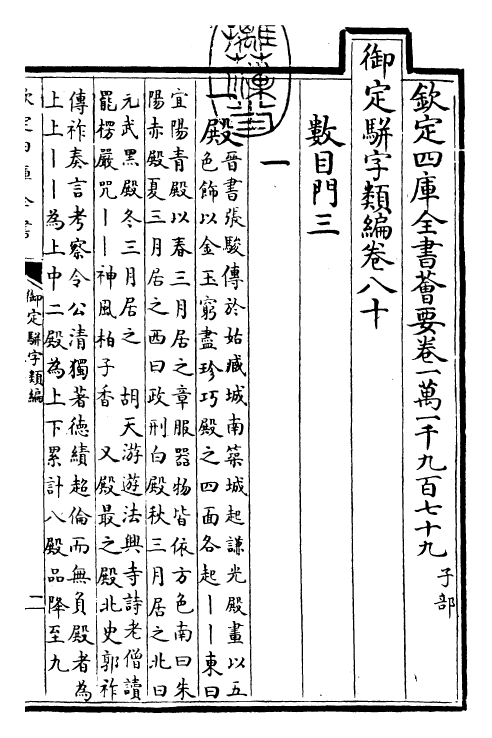 欽定四庫全書薈要卷一萬一千九百七十九 子部
御定駢字類編卷八十
數目門三
一
一殿晉書張駿傳於姑臧城南築城起謙光殿畫以五
色飾以金玉窮盡珍巧殿之四面各起一一東曰
宜陽青殿以春三月居之章服器物皆依方色南曰朱
陽赤殿夏三月居之西曰政刑白殿秋三月居之北曰
元武黑殿冬三月居之 胡天游遊法興寺詩老僧讀
罷楞嚴咒一一神風柏子香 又殿最之殿北史郭祚
傳祚奏言考察令公清獨著德績超倫而無負殿者為
上上一一為上中二殿為上下累計八殿品降至九
欽定四庫全書
御定駢字類編
二